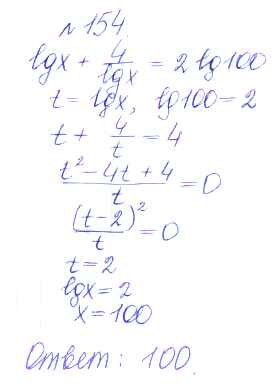 № 154.
lgx + 4/lgx = 2lg100
t = lgx, lg100 = 2
t + 4/t = 4
(t² - 4t + 4)/t = 0
(t-2)²/t = 0
t = 2
lgx = 2
x = 100
Ответ: 100.